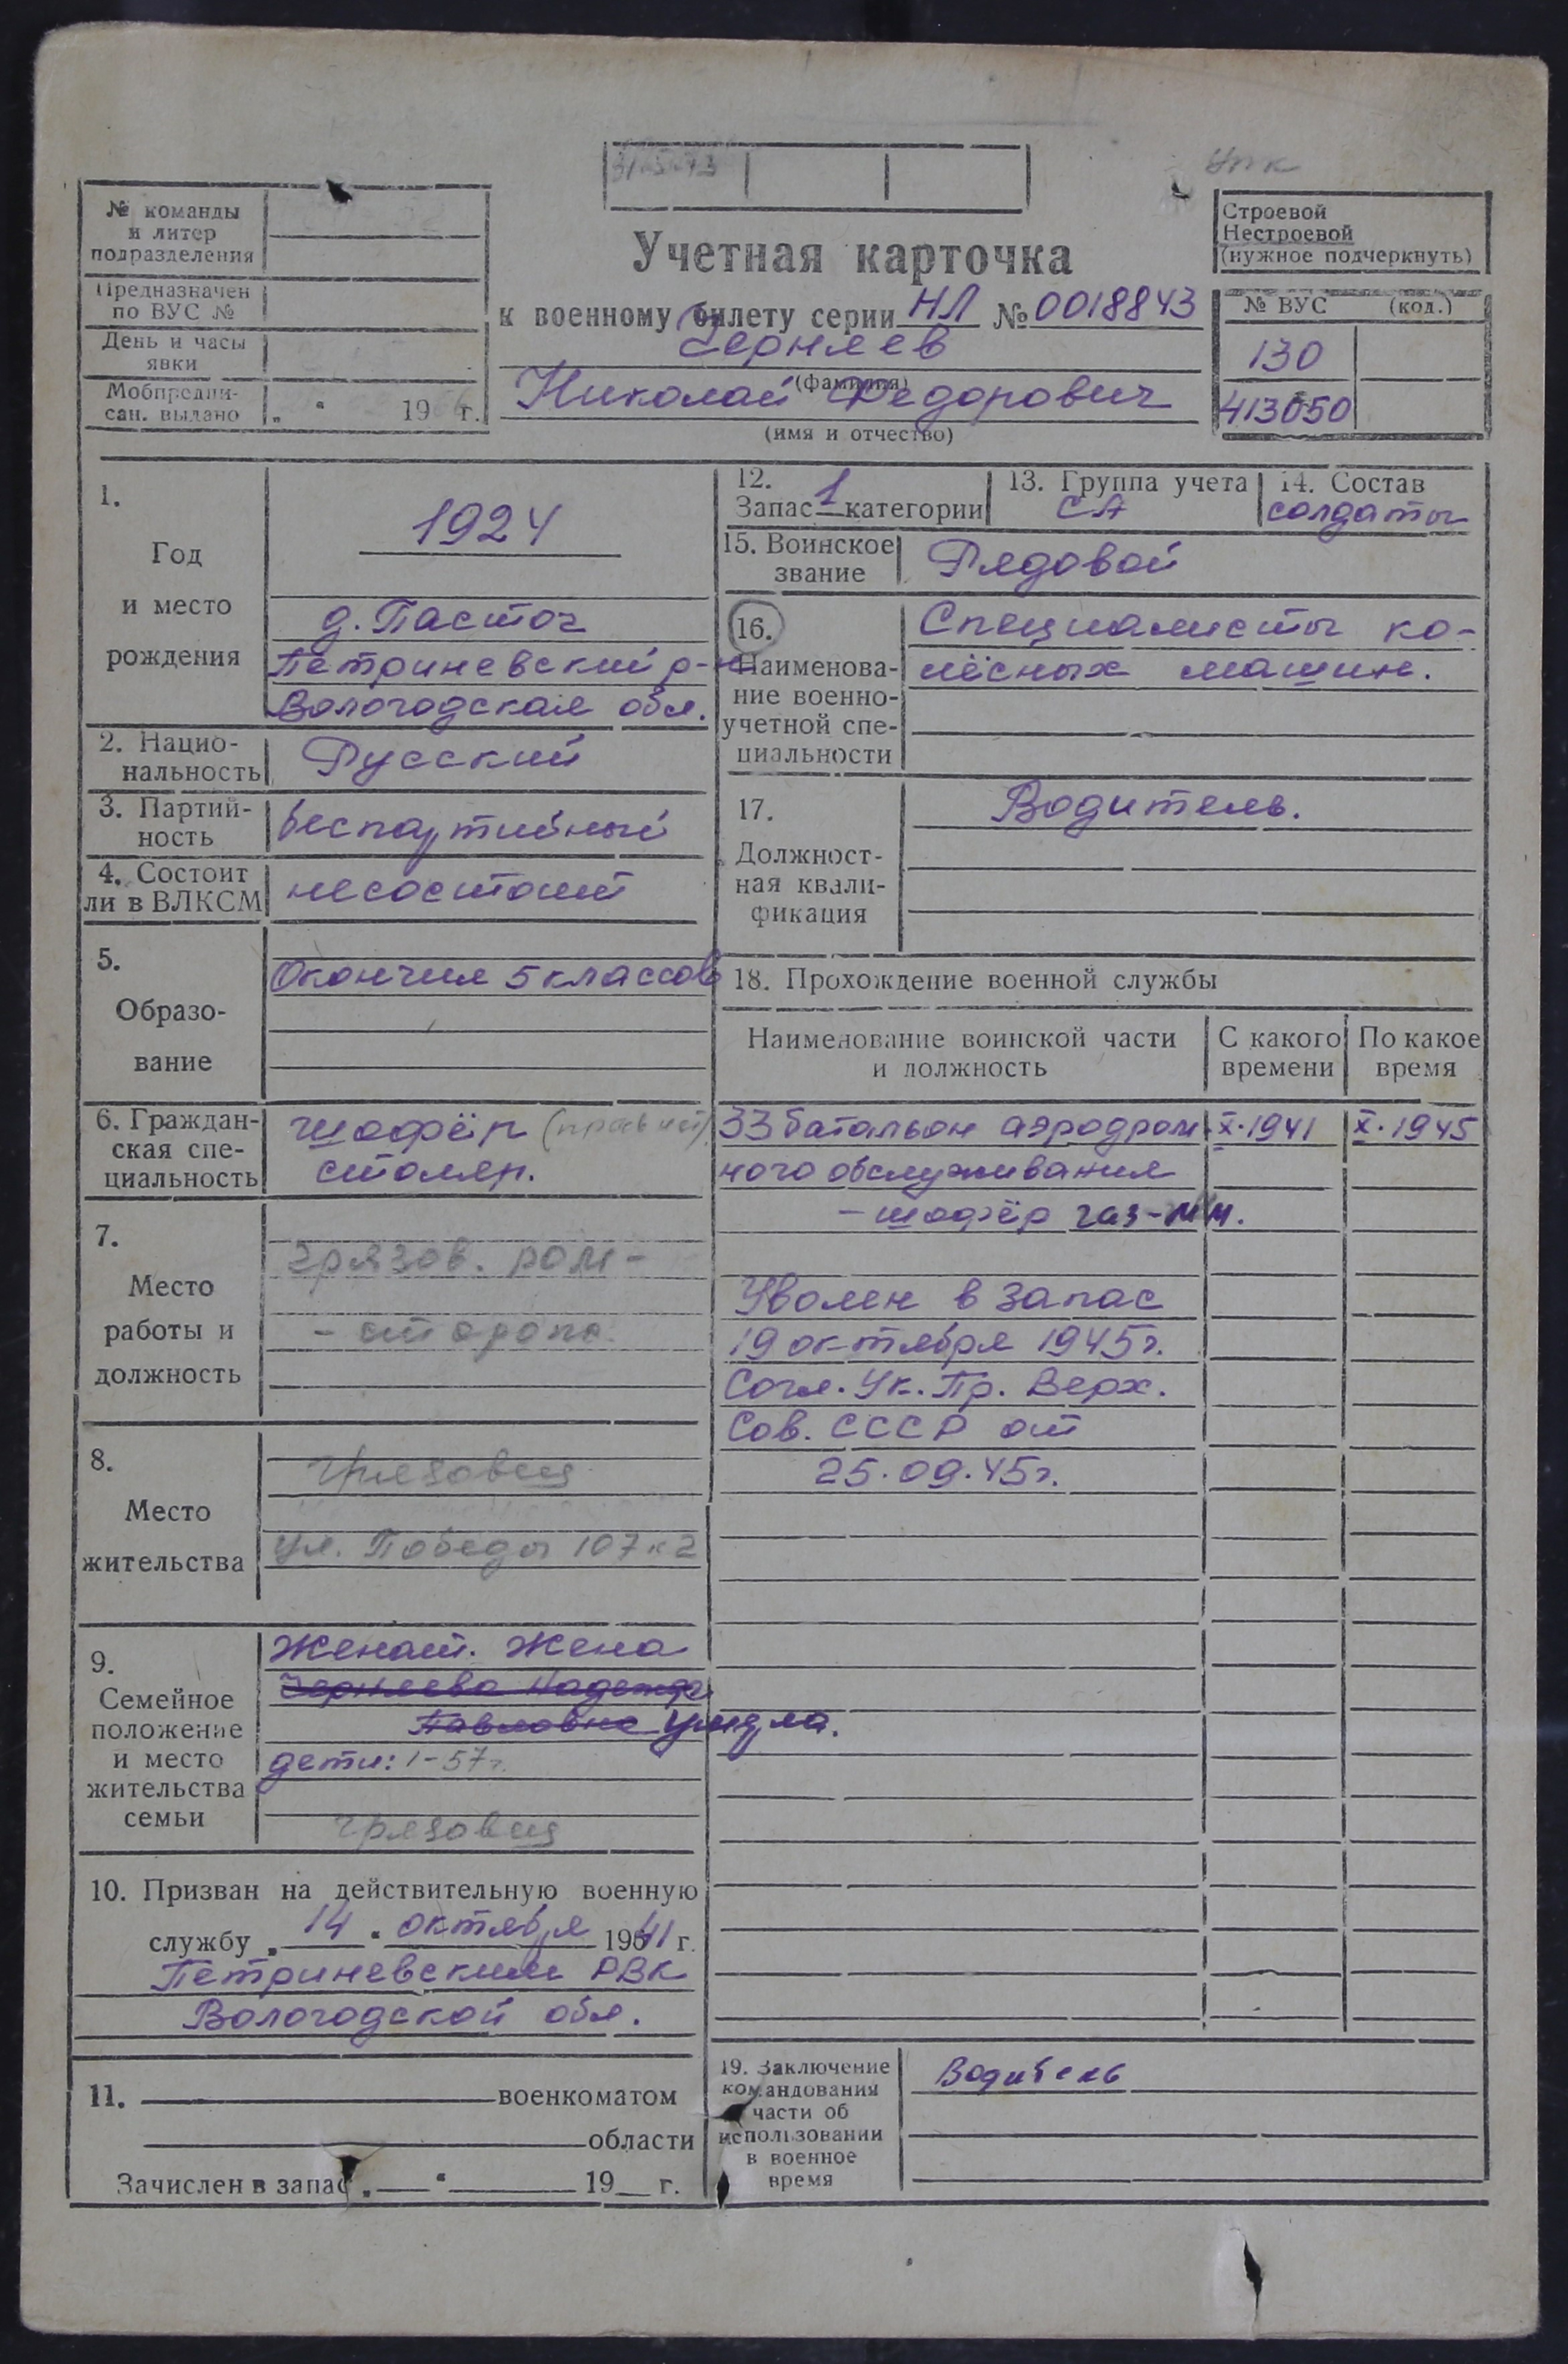 Упк
№ команды
и литер
подразделения
Предназначен
по ВУС №
День и часы
явки
Мобпредпи-
сан. выдано „ “ 19 г.
Учетная карточка
к военному билету серии НЛ № 0018843
Черняев
(фамилия)
Николай Федорович
(имя и отчество)
Строевой
Нестроевой
(нужное подчеркнуть)
№ ВУС (код.)
130
413050
1.
Год
и место
рождения
1924
Петриневский р-н
Вологодская обл.
2. Нацио-
нальность
Русский
3. Партий-
ность
беспартийный
4. Состоит
ли в ВЛКСМ
несостоит
5.
Образо-
вание
Окончил 5 классов
6. Граждан-
ская спе-
циальность
шофёр (прав нет)
столяр.
7.
Место
работы и
должность
грязов.
8.
Место
жительства
Грязовец
ул. Победы 107 к 2
9.
Семейное
положение
и место
жительства
семьи
Женат. Жена
Черняева Надежда
Павловна Умерла.
дети: 1-57г.
Грязовец
10. Призван на действительную военную
службу „ 14 “ октября 1941 г.
Петриневским РВК
Вологодской обл.
11. военкоматом
области
Зачислен в запас „ “ 19 г.
12.
Запас 1 категории
13. Группа учета
СА
14. Состав
солдаты
15. Воинское
звание
Рядовой
16.
Наименова-
ние военно-
учетной спе-
циальности
Специалисты ко-
лёсных машин.
17.
Должност-
ная квали-
фикация
Водитель.
18. Прохождение военной службы
Наименование воинской части
и должность
С какого
времени
По какое
время
33 батальон аэродром X.1941 X.1945
ного обслуживания
- шофёр газ-мм.
Уволен в запас
19 октября 1945г.
Согл. Ук. Пр. Верх.
Сов. СССР от
25.09.45г.
19. Заключение
командования
части об
использовании
в военное
время
Водитель